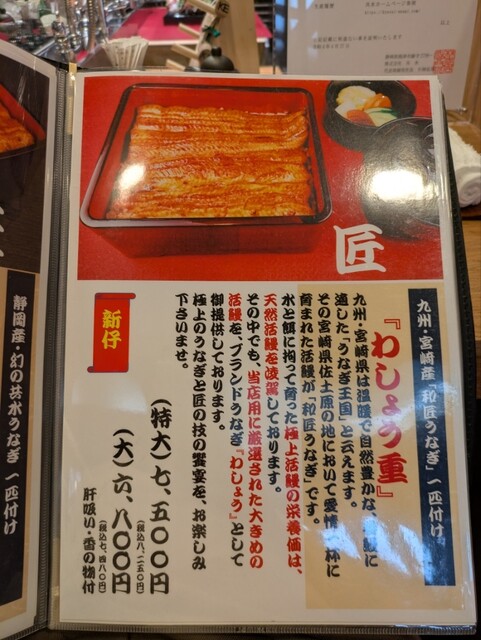 匠
九州・宮崎産「和匠うなぎ」一匹付け
『わしょう重』
九州・宮崎県は温暖で自然豊かな、
適した「うなぎ王国」と云えます。
その宮崎県佐土原の地において愛情一杯に
育まれた活鰻が「和匠うなぎ」です。
水と餌に拘って育った極上活鰻の栄養価は、
天然活鰻を凌駕しております。
その中でも、当店用に厳選された大きめの
活鰻を、ブランドうなぎ『わしょう』として
御提供しております。
極上のうなぎと匠の技の饗宴を、お楽しみ
下さいませ。
新仔
(特大)七、五〇〇円
(税込八、二五〇円)
(大)六、八〇〇円
(税込七、四八〇円)
肝吸い・香の物付
静岡産・幻の共水うなぎ 一匹付け